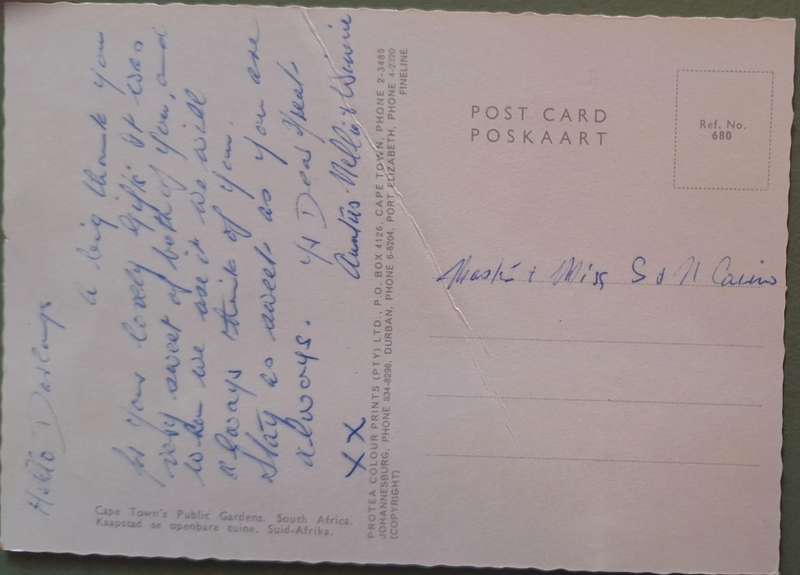 Hello Darlings
a big thank you
for your lovely gifts it was
very sweet of both of you, and
when we use it we will
always think of you.
Stay as sweet as you are
always.
Dear Heart
xx Aunties Nellie & Winnie
Cape Town's Public Gardens. South Africa.
Kaapstad se openbare tuine. Suid-Afrika.
PROTEA COLOUR PRINTS (PTY) LTD., P.O. BOX 4126, CAPE TOWN, PHONE 2-3485
JOHANNESBURG, PHONE 834-8298, DURBAN, PHONE 6-8204, PORT ELIZABETH, PHONE 4-2720
(COPYRIGHT) FINELINE
POST CARD
POSKAART
Ref. No.
680
& Miss S & N